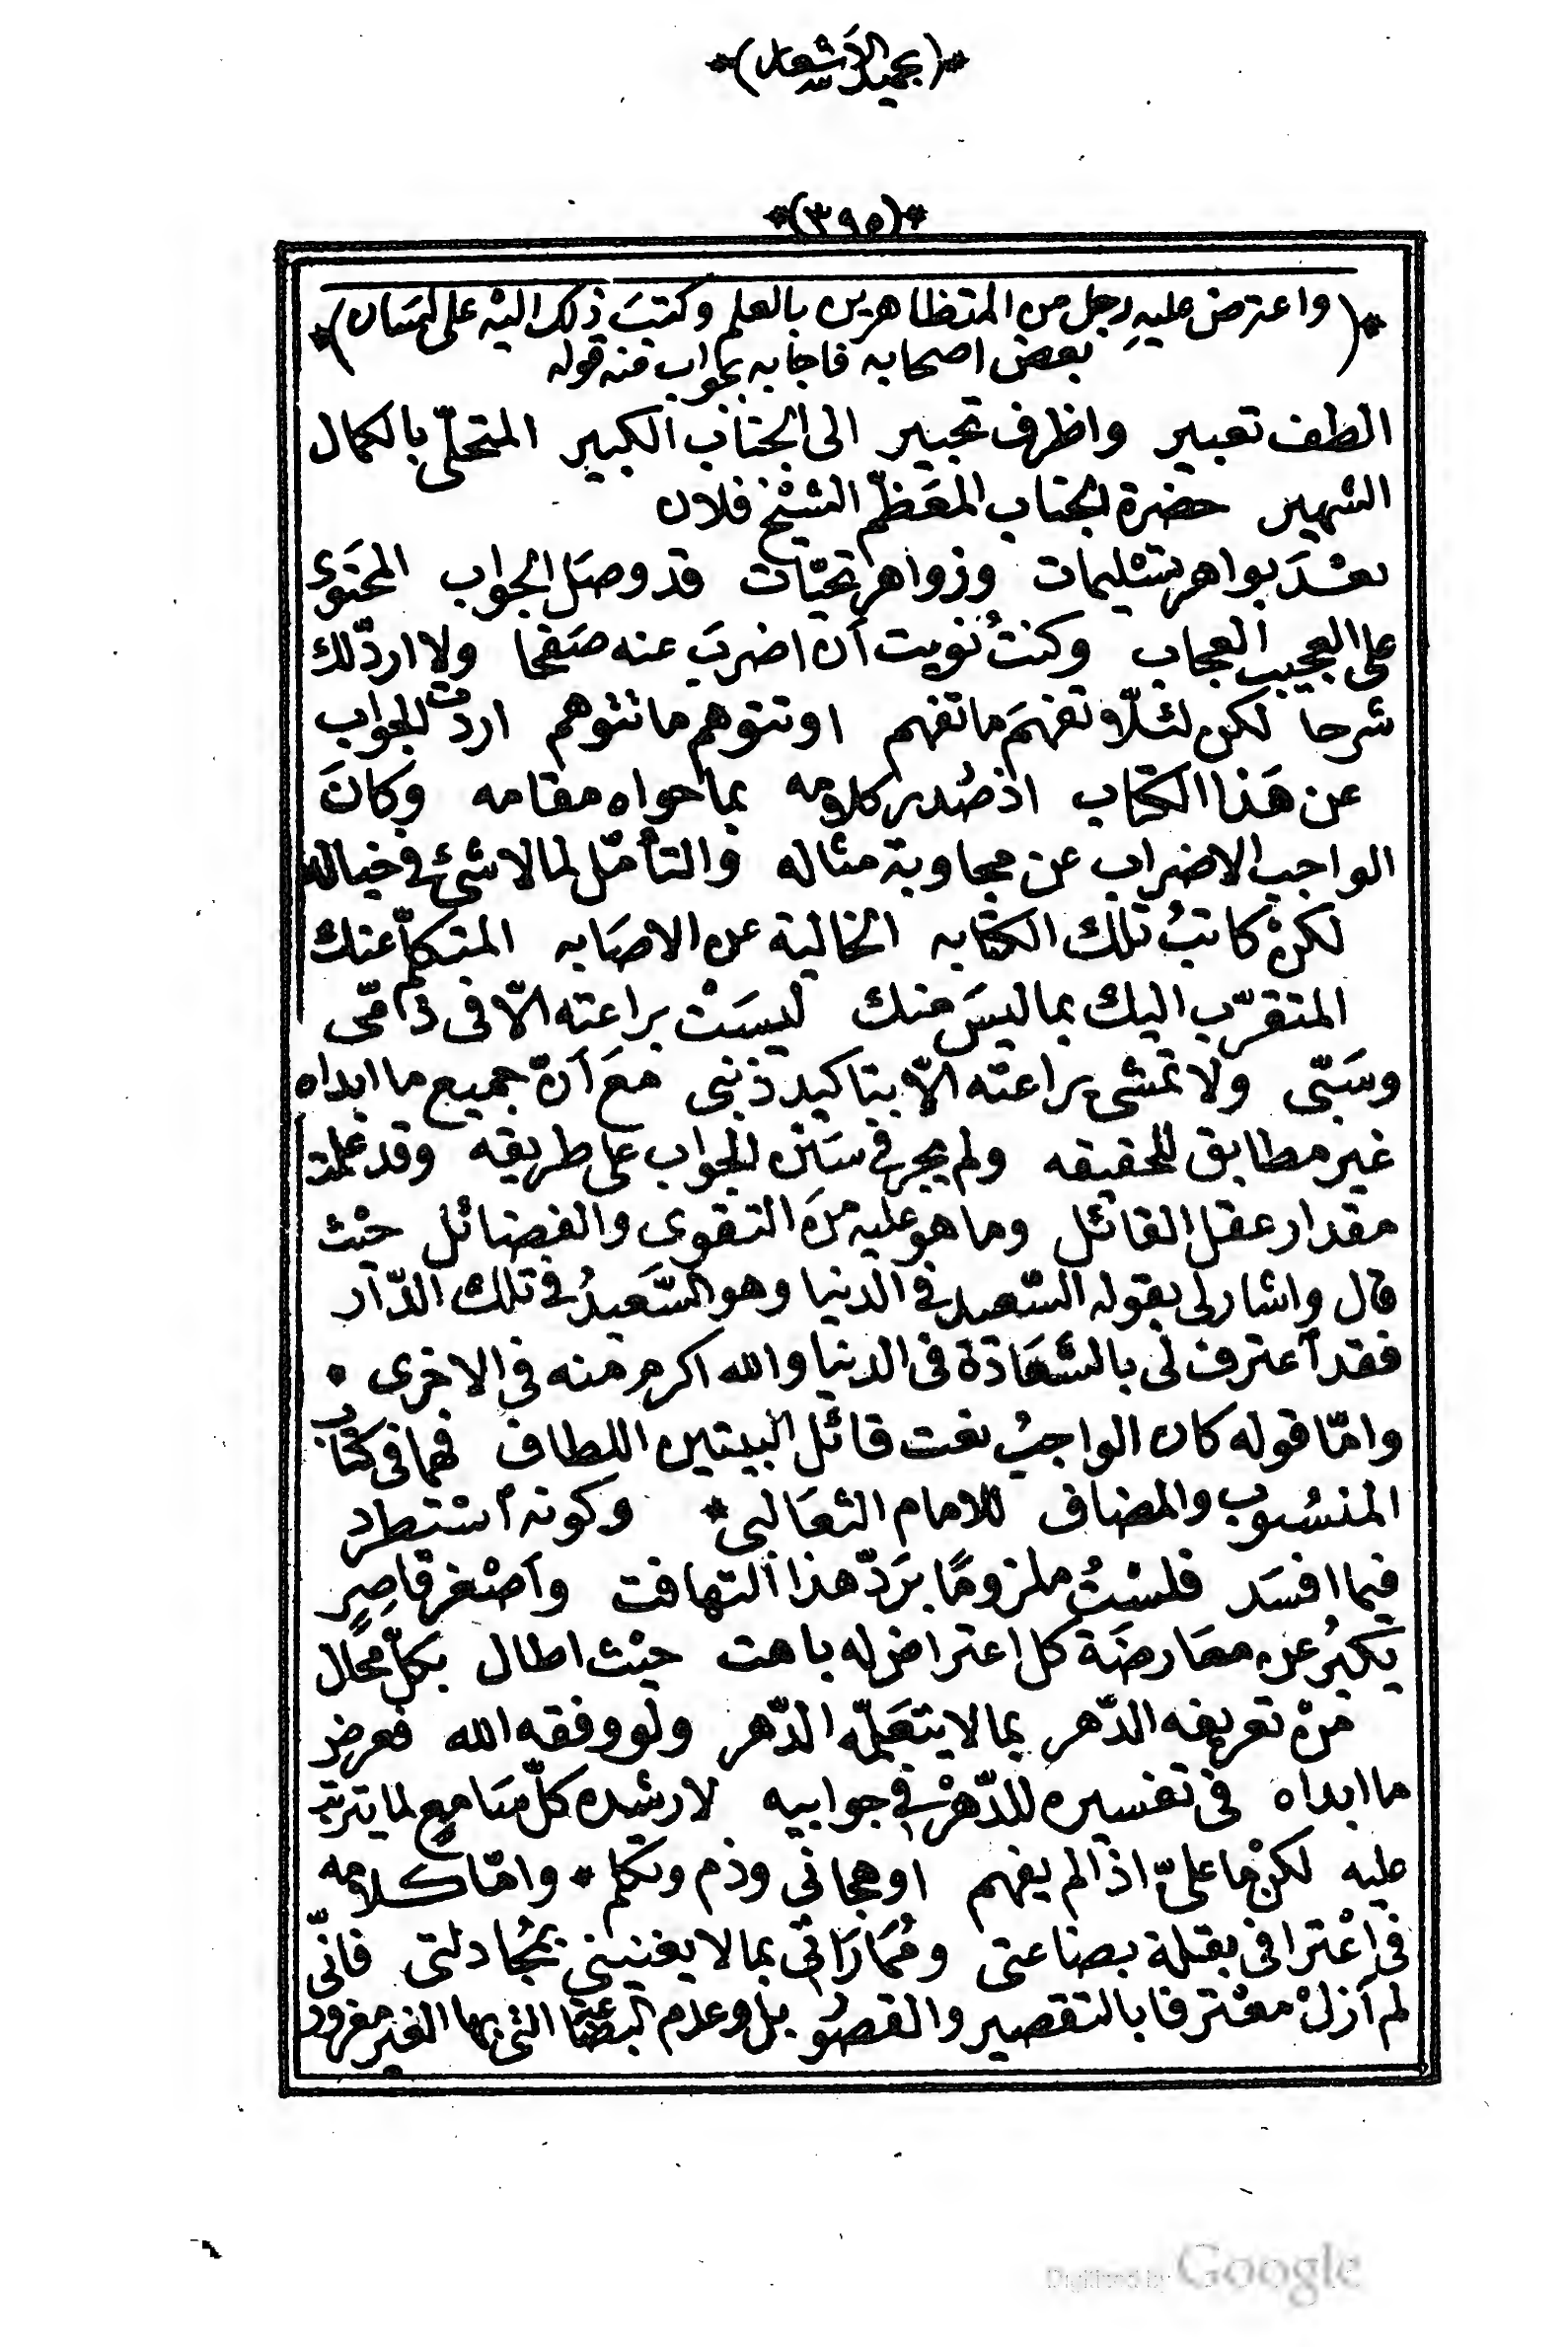 *(بحميد الاشعار)*
*(٣٩٥)*
*(واعترض عليهِ رجل من المتظاهرين بالعلم وكتبَ ذلك اليْه على لسَان)*
بعض اصحابه فاجابه بجواب منه قوله
الطف تعبير واظرف تحبير الى الجناب الكبير المتحلّى بالكمال
الشهير حضرة الجناب المعَظّم الشيْخ فلان
بعْدَ بواهر تسْليمات وزواهر تحيّات قد وصَل الجواب المحتوى
على العجيب العجاب وكنتُ نويت أن اضربَ عنه صَفحا ولا اردّ لك
شرحا لكن لئلّا تفهمَ ما تفهم او تتوهم ما تتوهم اردت الجواب
عن هَذا الكتاب اذ صُدر كلامه بما حواه مقامه وكانَ
الواجب الاضراب عن مجاوبة مثاله والتأمّل لما لا شئ فى خياله
لكنْ كاتبُ تلك الكتابه الخالية عن الاصَابه المتكلّم عنك
المتقرّب اليك بما ليسَ منك ليسَتْ براعته الّا فى ذامّى
وسَبّى ولا تمشى يراعته الّا بتاكيد ذنبى معَ أنّ جميع ما ابداه
غير مطابق للحقيقه ولم يجر فى سَنن الجواب على طريقه وقد علمت
مقدار عقل القائل وما هو عليه منَ التقوى والفضائل حيْث
قال واشار لى بقوله السّعيد فى الدنيا وهو السَّعيدُ فى تلك الدّار
فقد أعترف لى بالسَّعَادَة فى الدنيا والله اكرم منه فى الاخرى •
وامّا قوله كان الواجبُ نعت قائل البيتين اللطاف فهما فى كتاب
المنسُوب والمضاف للامام الثعَالبى * وكونه أستطرد
فيما افسَد فلسْتُ ملزومًا برَدّ هذا التهافت وأصْغر قاصِرٍ
يَكبُر عن معَارضَة كل اعتراض له باهت حيْث اطال بكلّ محَال
منْ تعريفه الدّهر بما لا يتعَلّمه الدّهر ولو وفقه الله فعرض
ما ابداه فى تفسيره للدّهْر فى جوابيه لارشده كلّ سَامع لما يترتب
عليه لكنْ ما علىّ اذا لم يفهم او هجانى وذم وتكلم * وامّا كلامه
فى اعْترافى بقلة بضاعتى ومُمَارَاتى بما لا يغنينى بمُجَادلتى فانّى
لم أزلْ معْترفا بالتقصير والقصوُر بل وعدم البضاعة التى بها الغير مغرور